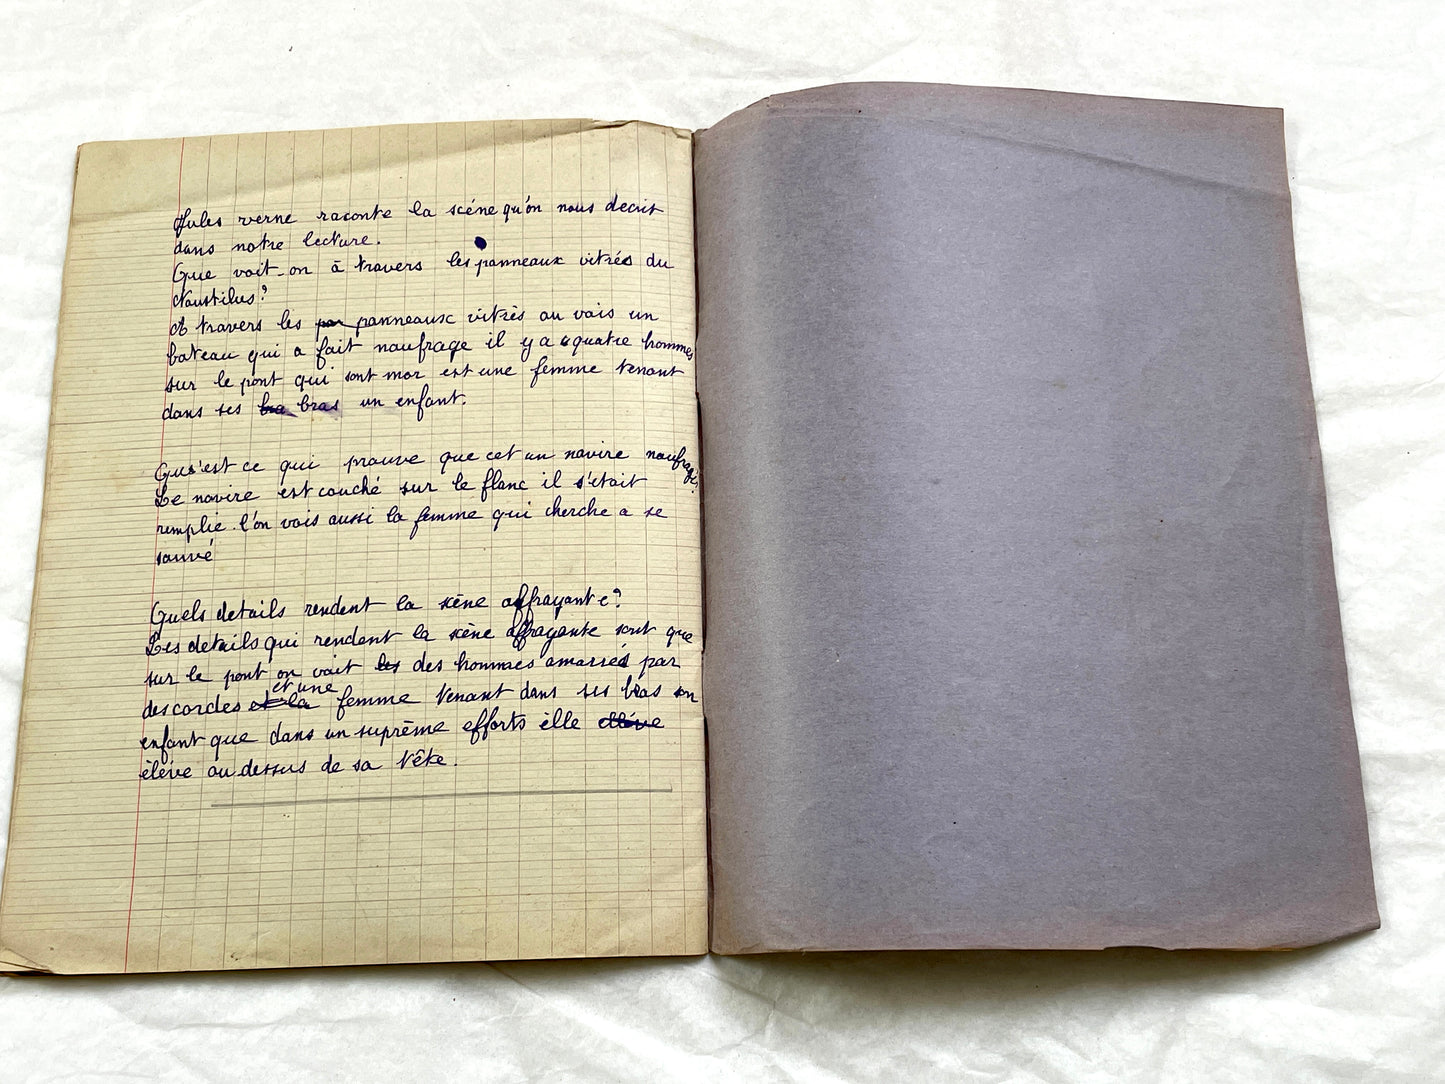 Jules verne raconte la scéne qu'on nous decrit
dans notre lecture.
Que voit-on à travers les panneaux vitrés du
Nautilus?
A travers les par panneaux vitrès on vois un
bateau qui a fait naufrage il y a quatre hommes
sur le pont qui sont mor est une femme tenant
dans ses bra bras un enfant.
Qus'est ce qui prouve que cet un navire naufragé?
Le navire est couché sur le flanc il s'était
remplie. l'on vois aussi la femme qui cherche a se
sauvé
Quels details rendent la scène affrayante?
Les details qui rendent la scène affrayante sont que
sur le pont on voit les des hommes amarrés par
des cordes et la et une femme tenant dans ses bras son
enfant que dans un suprême efforts élle
élève au dessus de sa tête.